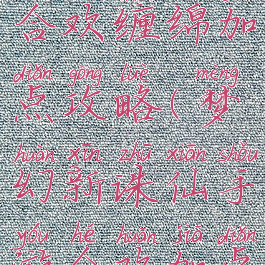 合欢缠绵加
diǎn gōng lüè mèng
点攻略(梦
huàn xīn zhū xiān shǒu
幻新诛仙手
yóu hé huān jiā diǎn
游合欢加点